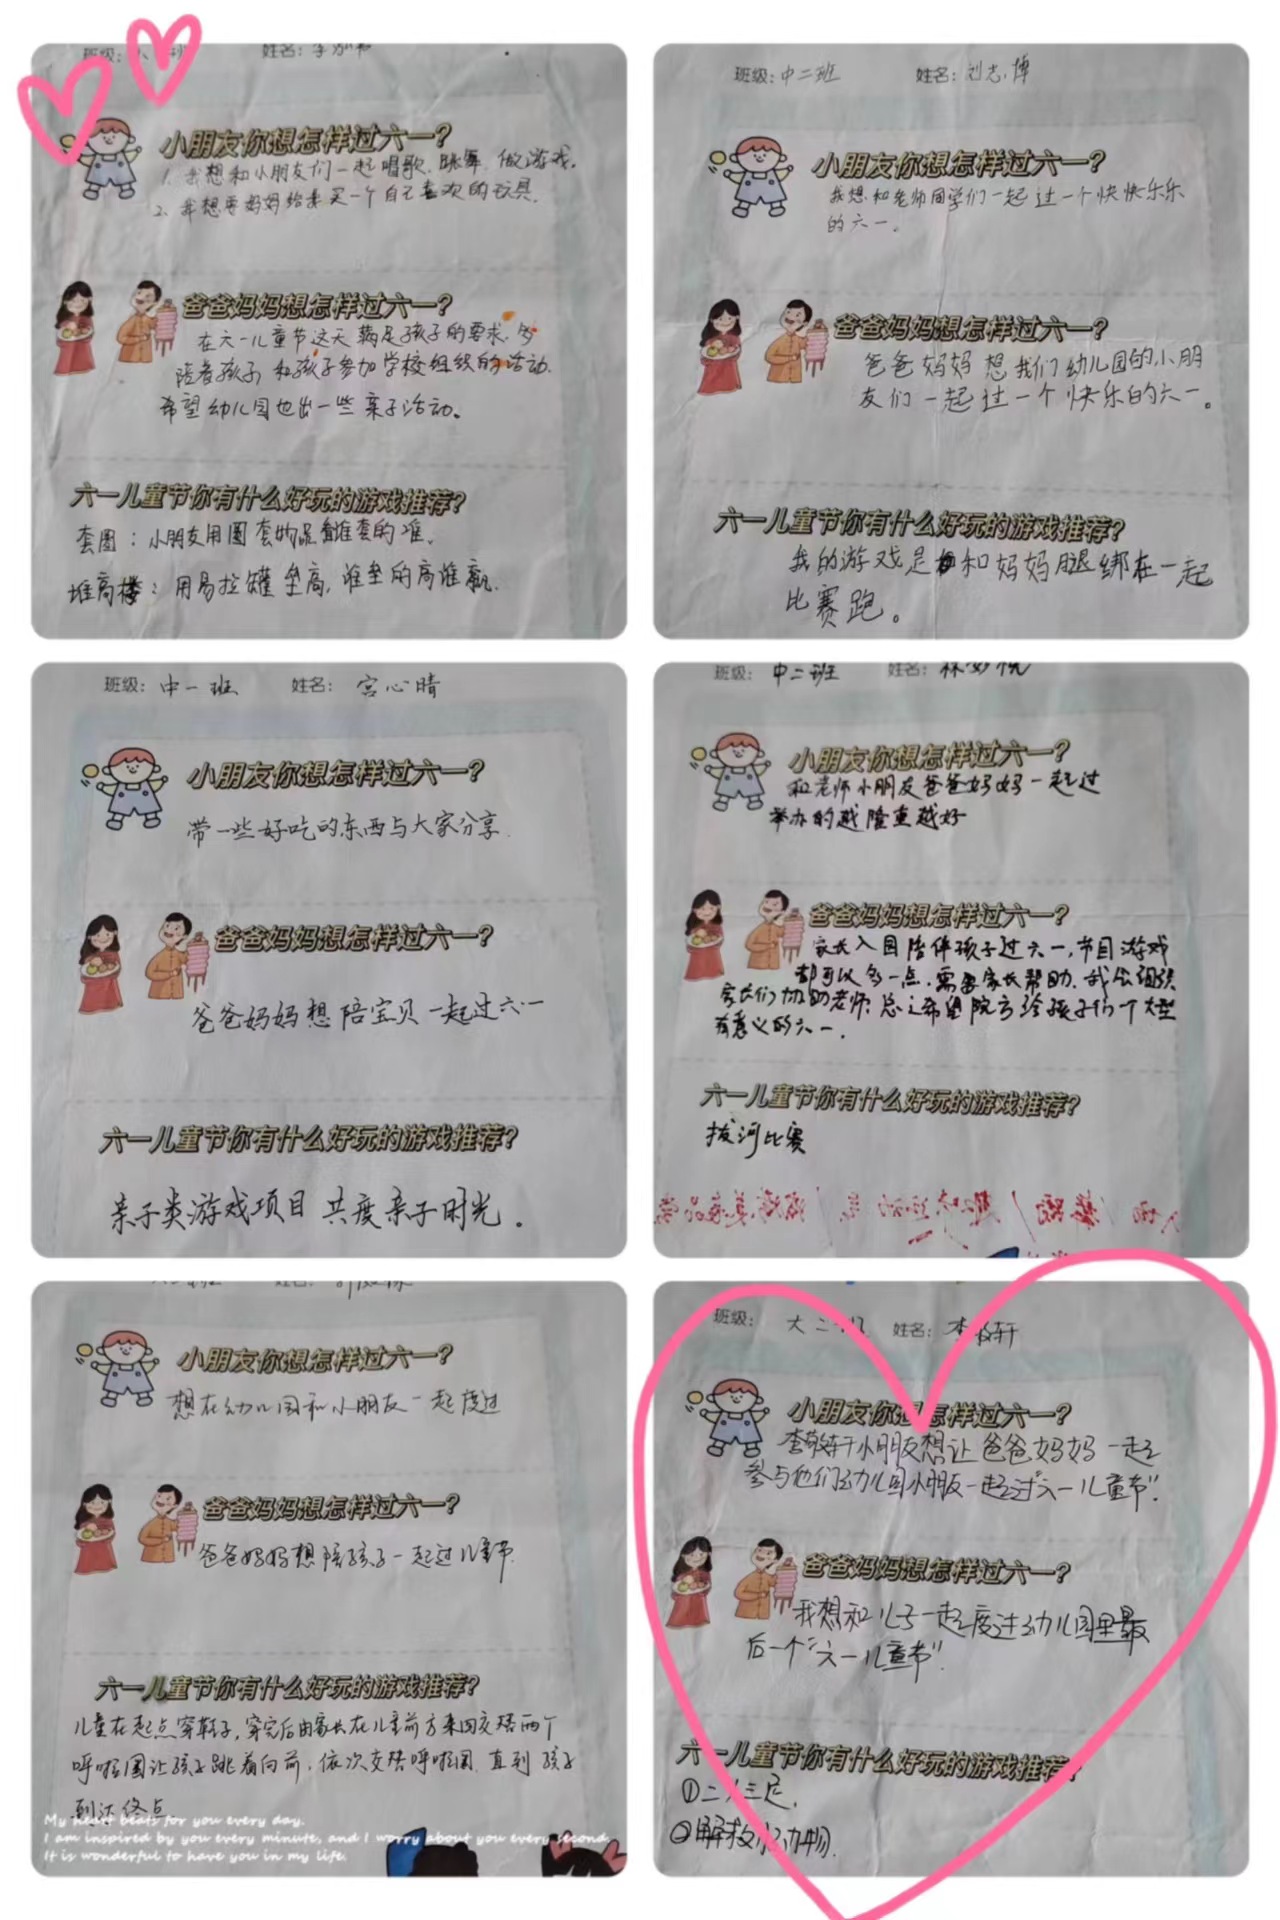 班级: 班 姓名: 李
小朋友你想怎样过六一?
1. 我想和小朋友们一起唱歌、跳舞、做游戏.
2. 我想要妈妈给我买一个自己喜欢的玩具.
爸爸妈妈想怎样过六一?
在六一儿童节这天满足孩子的要求.多
陪着孩子,和孩子参加学校组织的活动.
希望幼儿园也出一些亲子活动。
六一儿童节你有什么好玩的游戏推荐?
套圈:小朋友用圈套物品看谁套的准.
堆高楼:用易拉罐垒高,谁垒的高谁赢.
班级:中二班 姓名:刘志博
小朋友你想怎样过六一?
我想和老师同学们一起过一个快快乐乐
的六一。
爸爸妈妈想怎样过六一?
爸爸妈妈想我们幼儿园的小朋
友们一起过一个快乐的六一。
六一儿童节你有什么好玩的游戏推荐?
我的游戏是和妈妈腿绑在一起
比赛跑。
班级:中一班 姓名:宫心晴
小朋友你想怎样过六一?
带一些好吃的东西与大家分享.
爸爸妈妈想怎样过六一?
爸爸妈妈想陪宝贝一起过六一
六一儿童节你有什么好玩的游戏推荐?
亲子类游戏项目 共度亲子时光。
班级:中二班 姓名:
小朋友你想怎样过六一?
和老师小朋友爸爸妈妈一起过
举办的越隆重越好
爸爸妈妈想怎样过六一?
家长入园陪伴孩子过六一,节目游戏
都可以多一点,需要家长帮助.我会组织
家长们协助老师.总之希望院方给孩子们一个大型
有意义的六一.
六一儿童节你有什么好玩的游戏推荐?
拔河比赛
小朋友你想怎样过六一?
想在幼儿园和小朋友一起度过
爸爸妈妈想怎样过六一?
爸爸妈妈想陪孩子一起过儿童节.
六一儿童节你有什么好玩的游戏推荐?
儿童在起点穿鞋子,穿完后由家长在儿童前方来回交替两个
呼啦圈让孩子跳着向前,依次交替呼啦圈.直到孩子
到达终点.
My heart beats for you every day.
I am inspired by you every minute, and I worry about you every second.
It is wonderful to have you in my life.
班级: 大二班 姓名: 李敬轩
小朋友你想怎样过六一?
李敬轩小朋友想让爸爸妈妈一起
参与他们幼儿园小朋友一起过"六一儿童节".
爸爸妈妈想怎样过六一?
我想和儿子一起度过幼儿园里最
后一个"六一儿童节".
六一儿童节你有什么好玩的游戏推荐?
①二人三足.
②解救小动物.